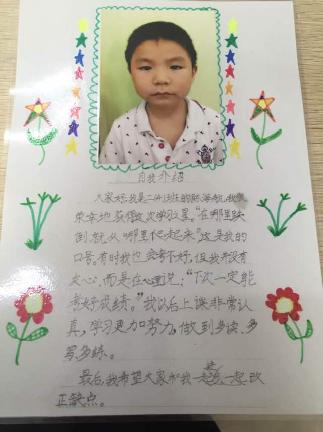 自我介绍
大家好,我是二班的陈海航,我很
荣幸地获得这次学习之星。“在哪里跌
倒就从哪里爬起来”这是我的
口号。有时我也会考不好,但我并没有
灰心,而是在心里说:“下次一定能
考好成绩。”我以后上课非常认
真,学习更加努力,做到多读、多
写、多练。
最后,我希望大家和我一起一起改
正缺点。